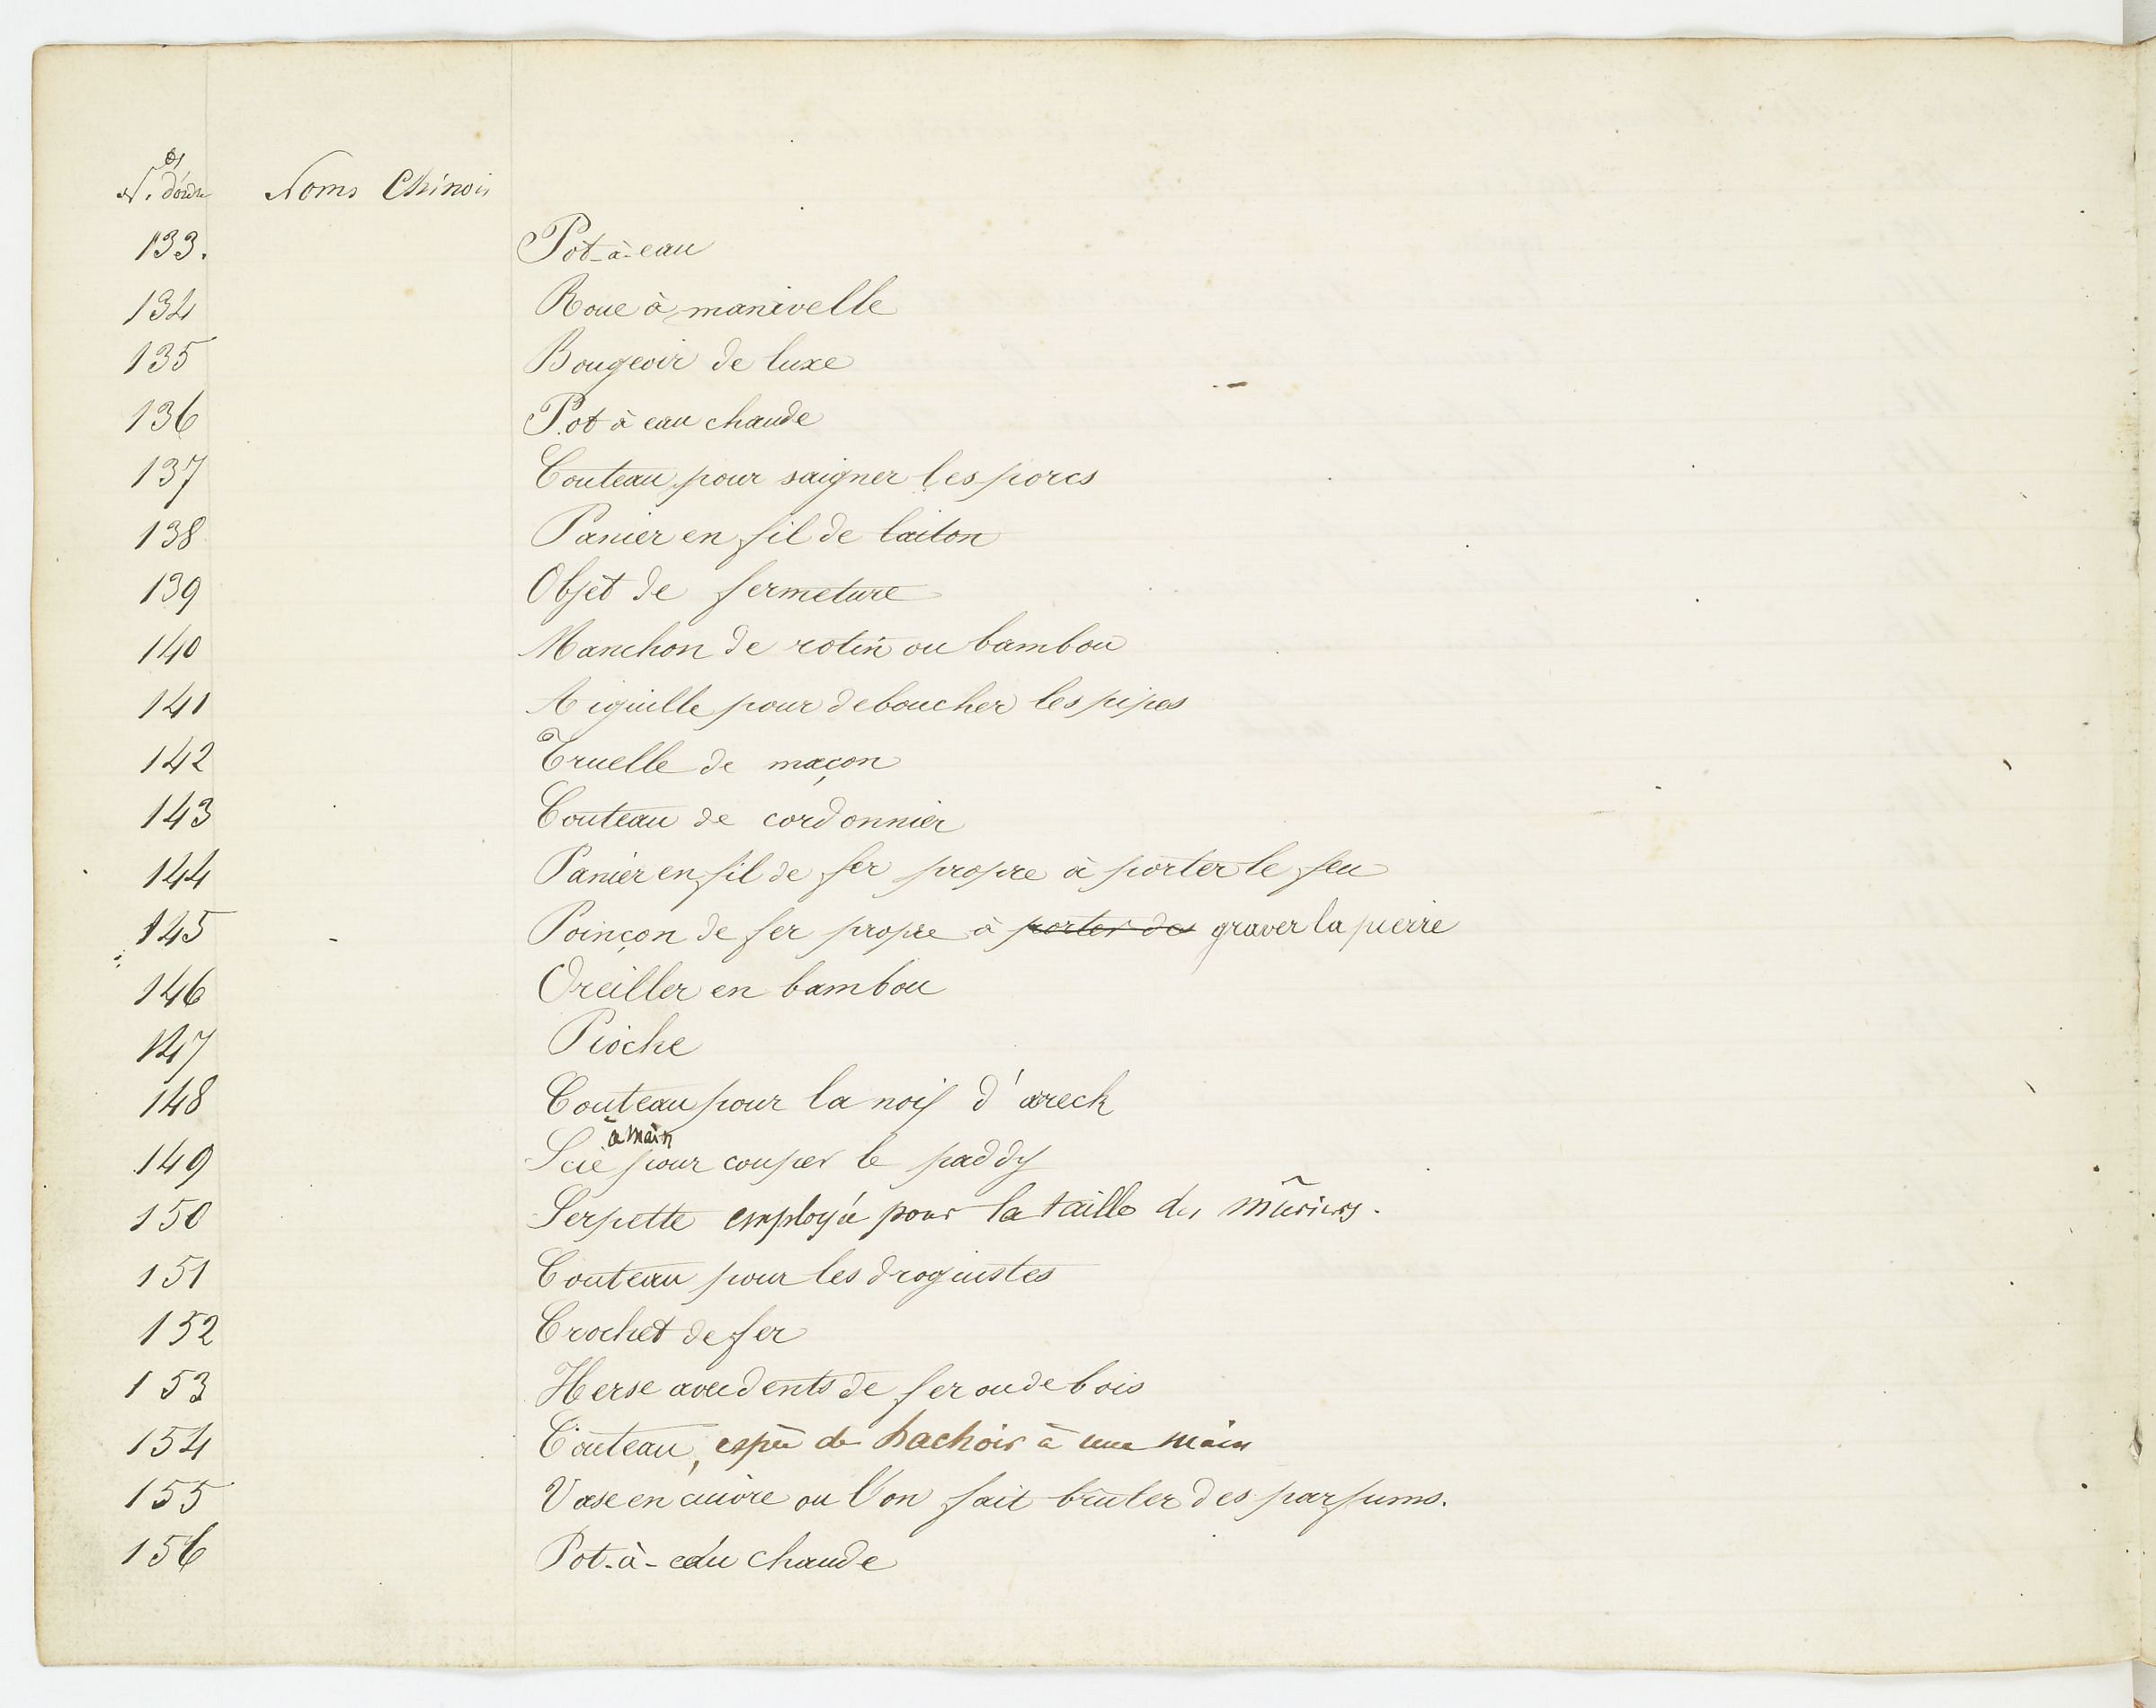 Nos. d'ordre Noms Chinois
133. Pot-à-eau
134 Roue à manivelle
135 Bougeoir de luxe
136 Pot à eau chaude
137 Couteau pour saigner les porcs
138 Panier en fil de laiton
139 Objet de fermeture
140 Manchon de rotin ou bambou
141 Aiguille pour deboucher les pipes
142 Truelle de maçon
143 Couteau de cordonnier
144 Panier en fil de fer propre à porter le feu
145 Poinçon de fer propre à porter des graver la pierre
146 Oreiller en bambou
147 Pioche
148 Couteau pour la noix d'areck
149 Scie à main pour couper le paddy
150 Serpette employée pour la taille des mûriers.
151 Couteau pour les droguistes
152 Crochet de fer
153 Herse avec dents de fer ou de bois
154 Couteau, espèce de hachoir à une main
155 Vase en cuivre ou l'on fait brûler des parfums.
156 Pot-à-eau chaude